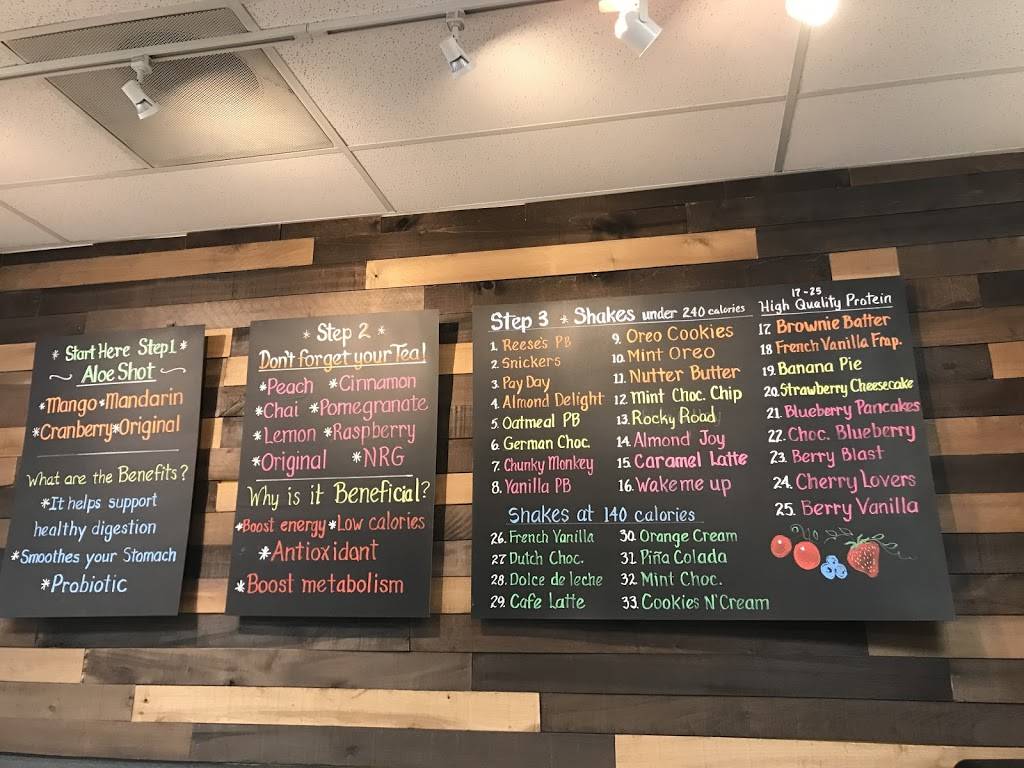 * Start Here Step 1 *
Aloe Shot
*Mango *Mandarin
*Cranberry *Original
What are the Benefits?
*It helps support
healthy digestion
*Smoothes your Stomach
*Probiotic
* Step 2 *
Don't forget your Tea!
*Peach *Cinnamon
*Chai *Pomegranate
*Lemon *Raspberry
*Original *NRG
Why is it Beneficial?
*Boost energy *Low calories
*Antioxidant
*Boost metabolism
Step 3 * Shakes under 240 calories
1. Reese's PB
2. Snickers
3. Pay Day
4. Almond Delight
5. Oatmeal PB
6. German Choc.
7. Chunky Monkey
8. Vanilla PB
9. Oreo Cookies
10. Mint Oreo
11. Nutter Butter
12. Mint Choc. Chip
13. Rocky Road
14. Almond Joy
15. Caramel Latte
16. Wake me up
17-25
High Quality Protein
17. Brownie Batter
18. French Vanilla Frap.
19. Banana Pie
20. Strawberry Cheesecake
21. Blueberry Pancakes
22. Choc. Blueberry
23. Berry Blast
24. Cherry Lovers
25. Berry Vanilla
Shakes at 140 calories
26. French Vanilla
27. Dutch Choc.
28. Dolce de leche
29. Cafe Latte
30. Orange Cream
31. Piña Colada
32. Mint Choc.
33. Cookies N' Cream